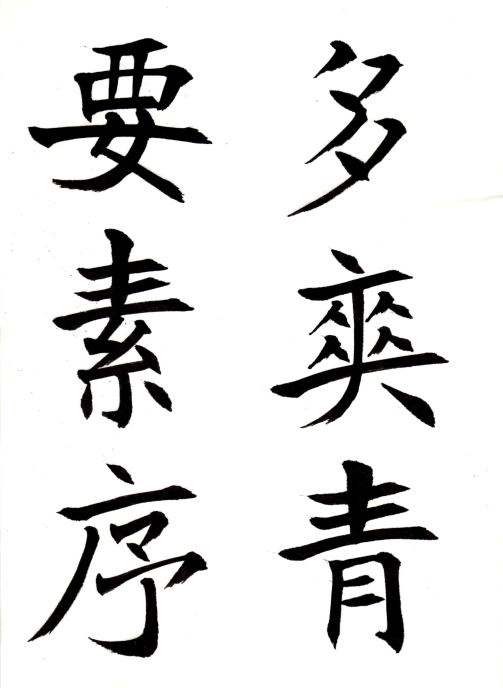 多爽青
要素序